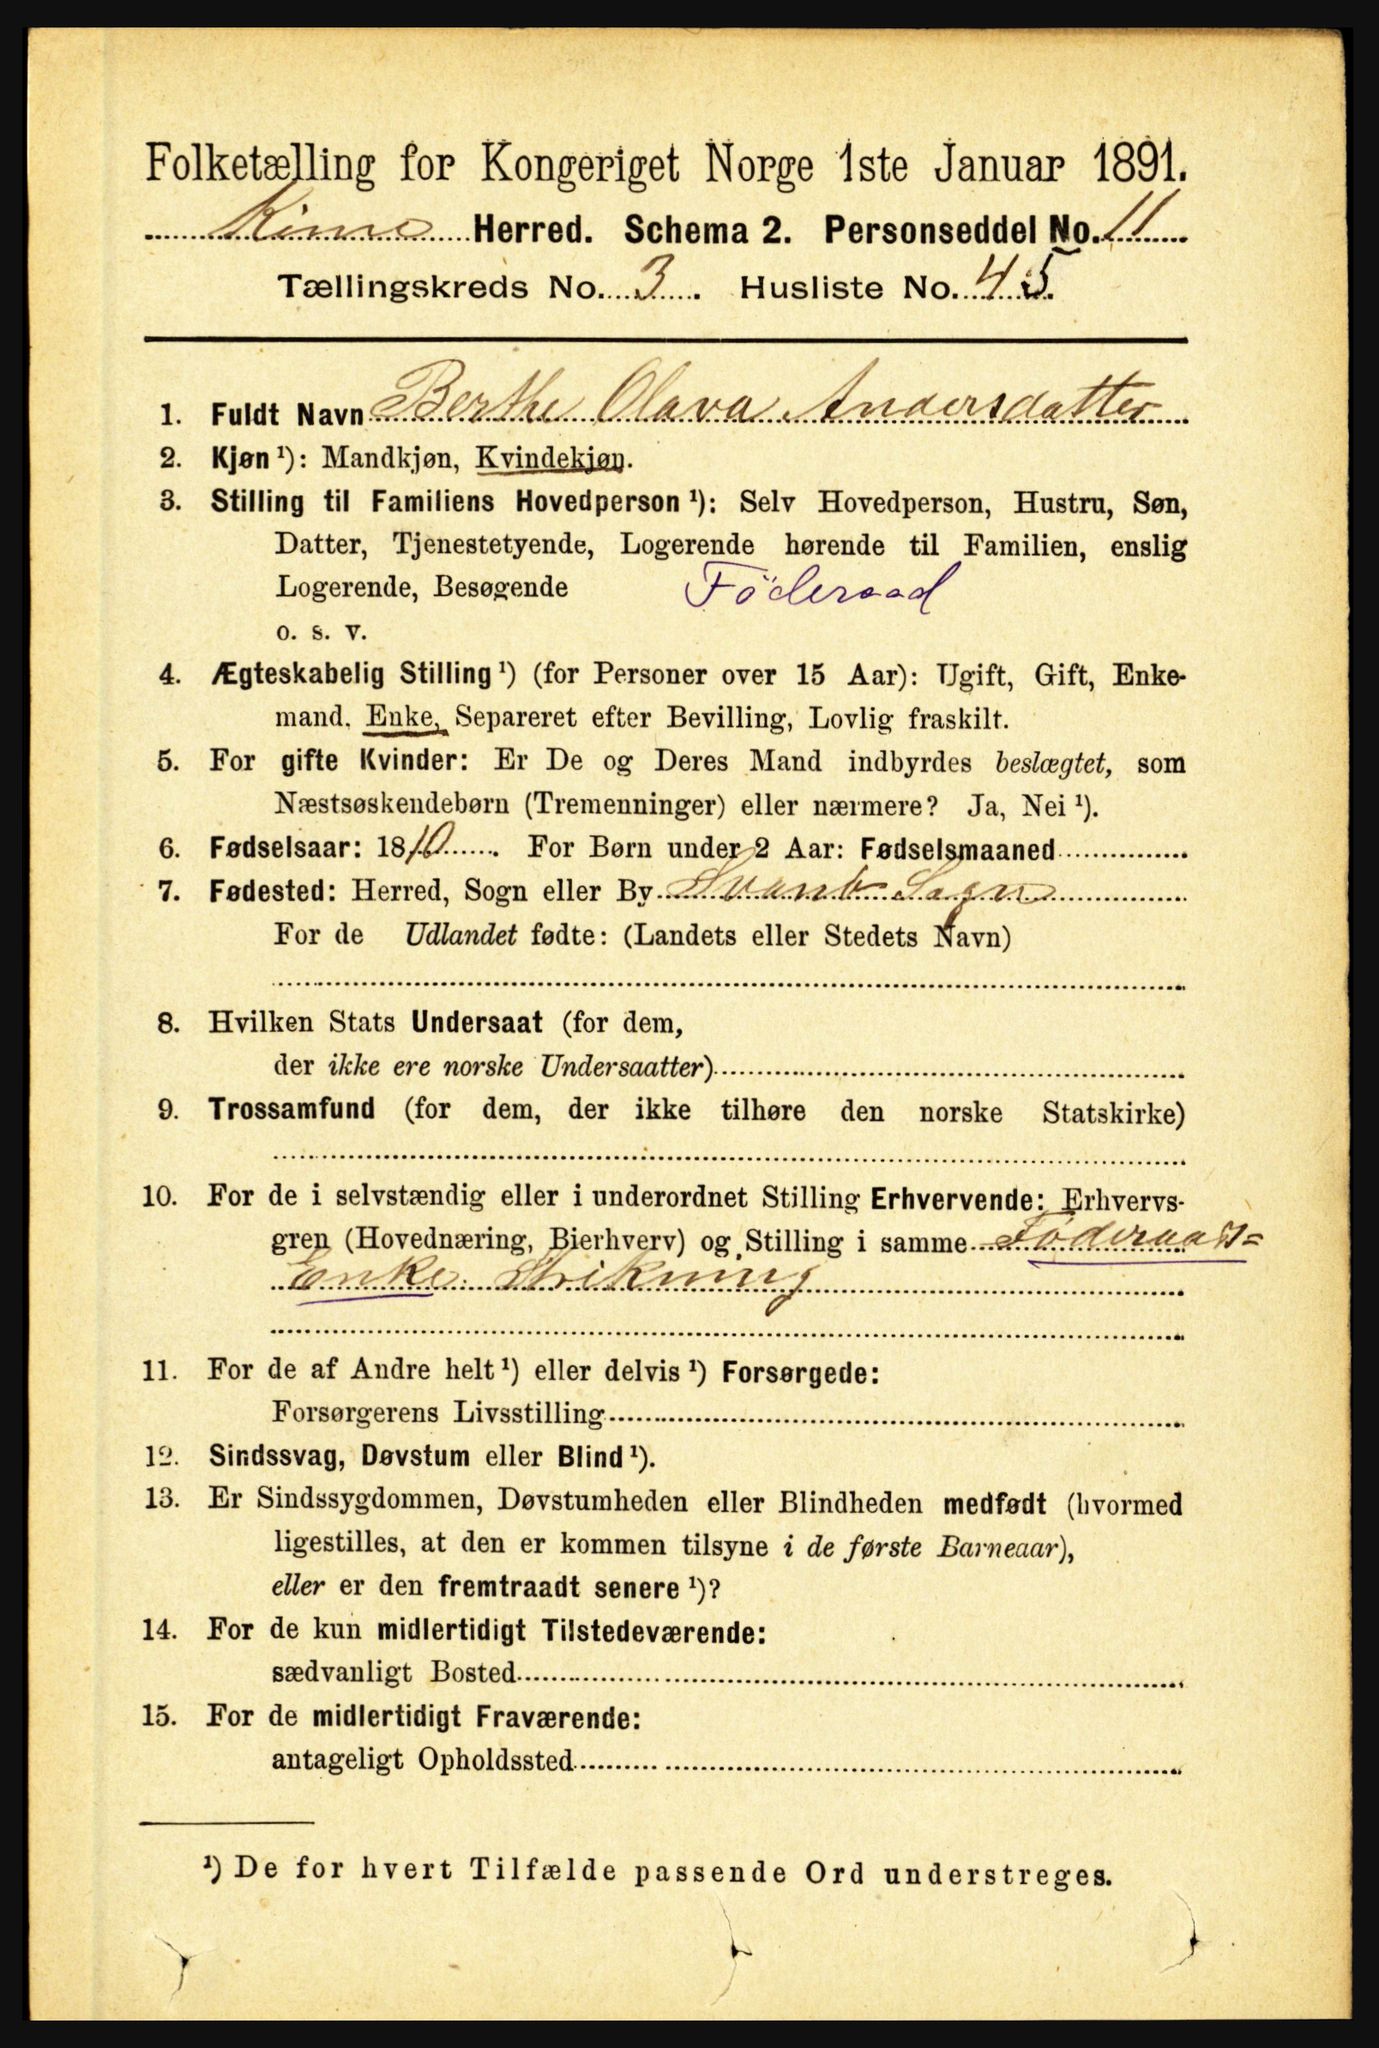 Folketælling for Kongeriget Norge 1ste Januar 1891.
Kinn Herred. Schema 2. Personseddel No. 11
Tællingskreds No. 3. Husliste No. 45.
1. Fuldt Navn Berthe Olava Andersdatter
2. Kjøn ¹): Mandkjøn, Kvindekjøn.
3. Stilling til Familiens Hovedperson ¹): Selv Hovedperson, Hustru, Søn,
Datter, Tjenestetyende, Logerende hørende til Familien, enslig
Logerende, Besøgende Föderaad
o. s. v.
4. Ægteskabelig Stilling ¹) (for Personer over 15 Aar): Ugift, Gift, Enke-
mand, Enke, Separeret efter Bevilling, Lovlig fraskilt.
5. For gifte Kvinder: Er De og Deres Mand indbyrdes beslægtet, som
Næstsøskendebørn (Tremenninger) eller nærmere? Ja, Nei ¹).
6. Fødselsaar: 1810. For Børn under 2 Aar: Fødselsmaaned
7. Fødested: Herred, Sogn eller By Svanö Sogn
For de Udlandet fødte: (Landets eller Stedets Navn)
8. Hvilken Stats Undersaat (for dem,
der ikke ere norske Undersaatter)
9. Trossamfund (for dem, der ikke tilhøre den norske Statskirke)
10. For de i selvstændig eller i underordnet Stilling Erhvervende: Erhvervs-
gren (Hovednæring, Bierhverv) og Stilling i samme Föderaads=
Enke. Strikning
11. For de af Andre helt ¹) eller delvis ¹) Forsørgede:
Forsørgerens Livsstilling
12. Sindssvag, Døvstum eller Blind ¹).
13. Er Sindssygdommen, Døvstumheden eller Blindheden medfødt (hvormed
ligestilles, at den er kommen tilsyne i de første Barneaar),
eller er den fremtraadt senere ¹)?
14. For de kun midlertidigt Tilstedeværende:
sædvanligt Bosted
15. For de midlertidigt Fraværende:
antageligt Opholdssted
¹) De for hvert Tilfælde passende Ord understreges.